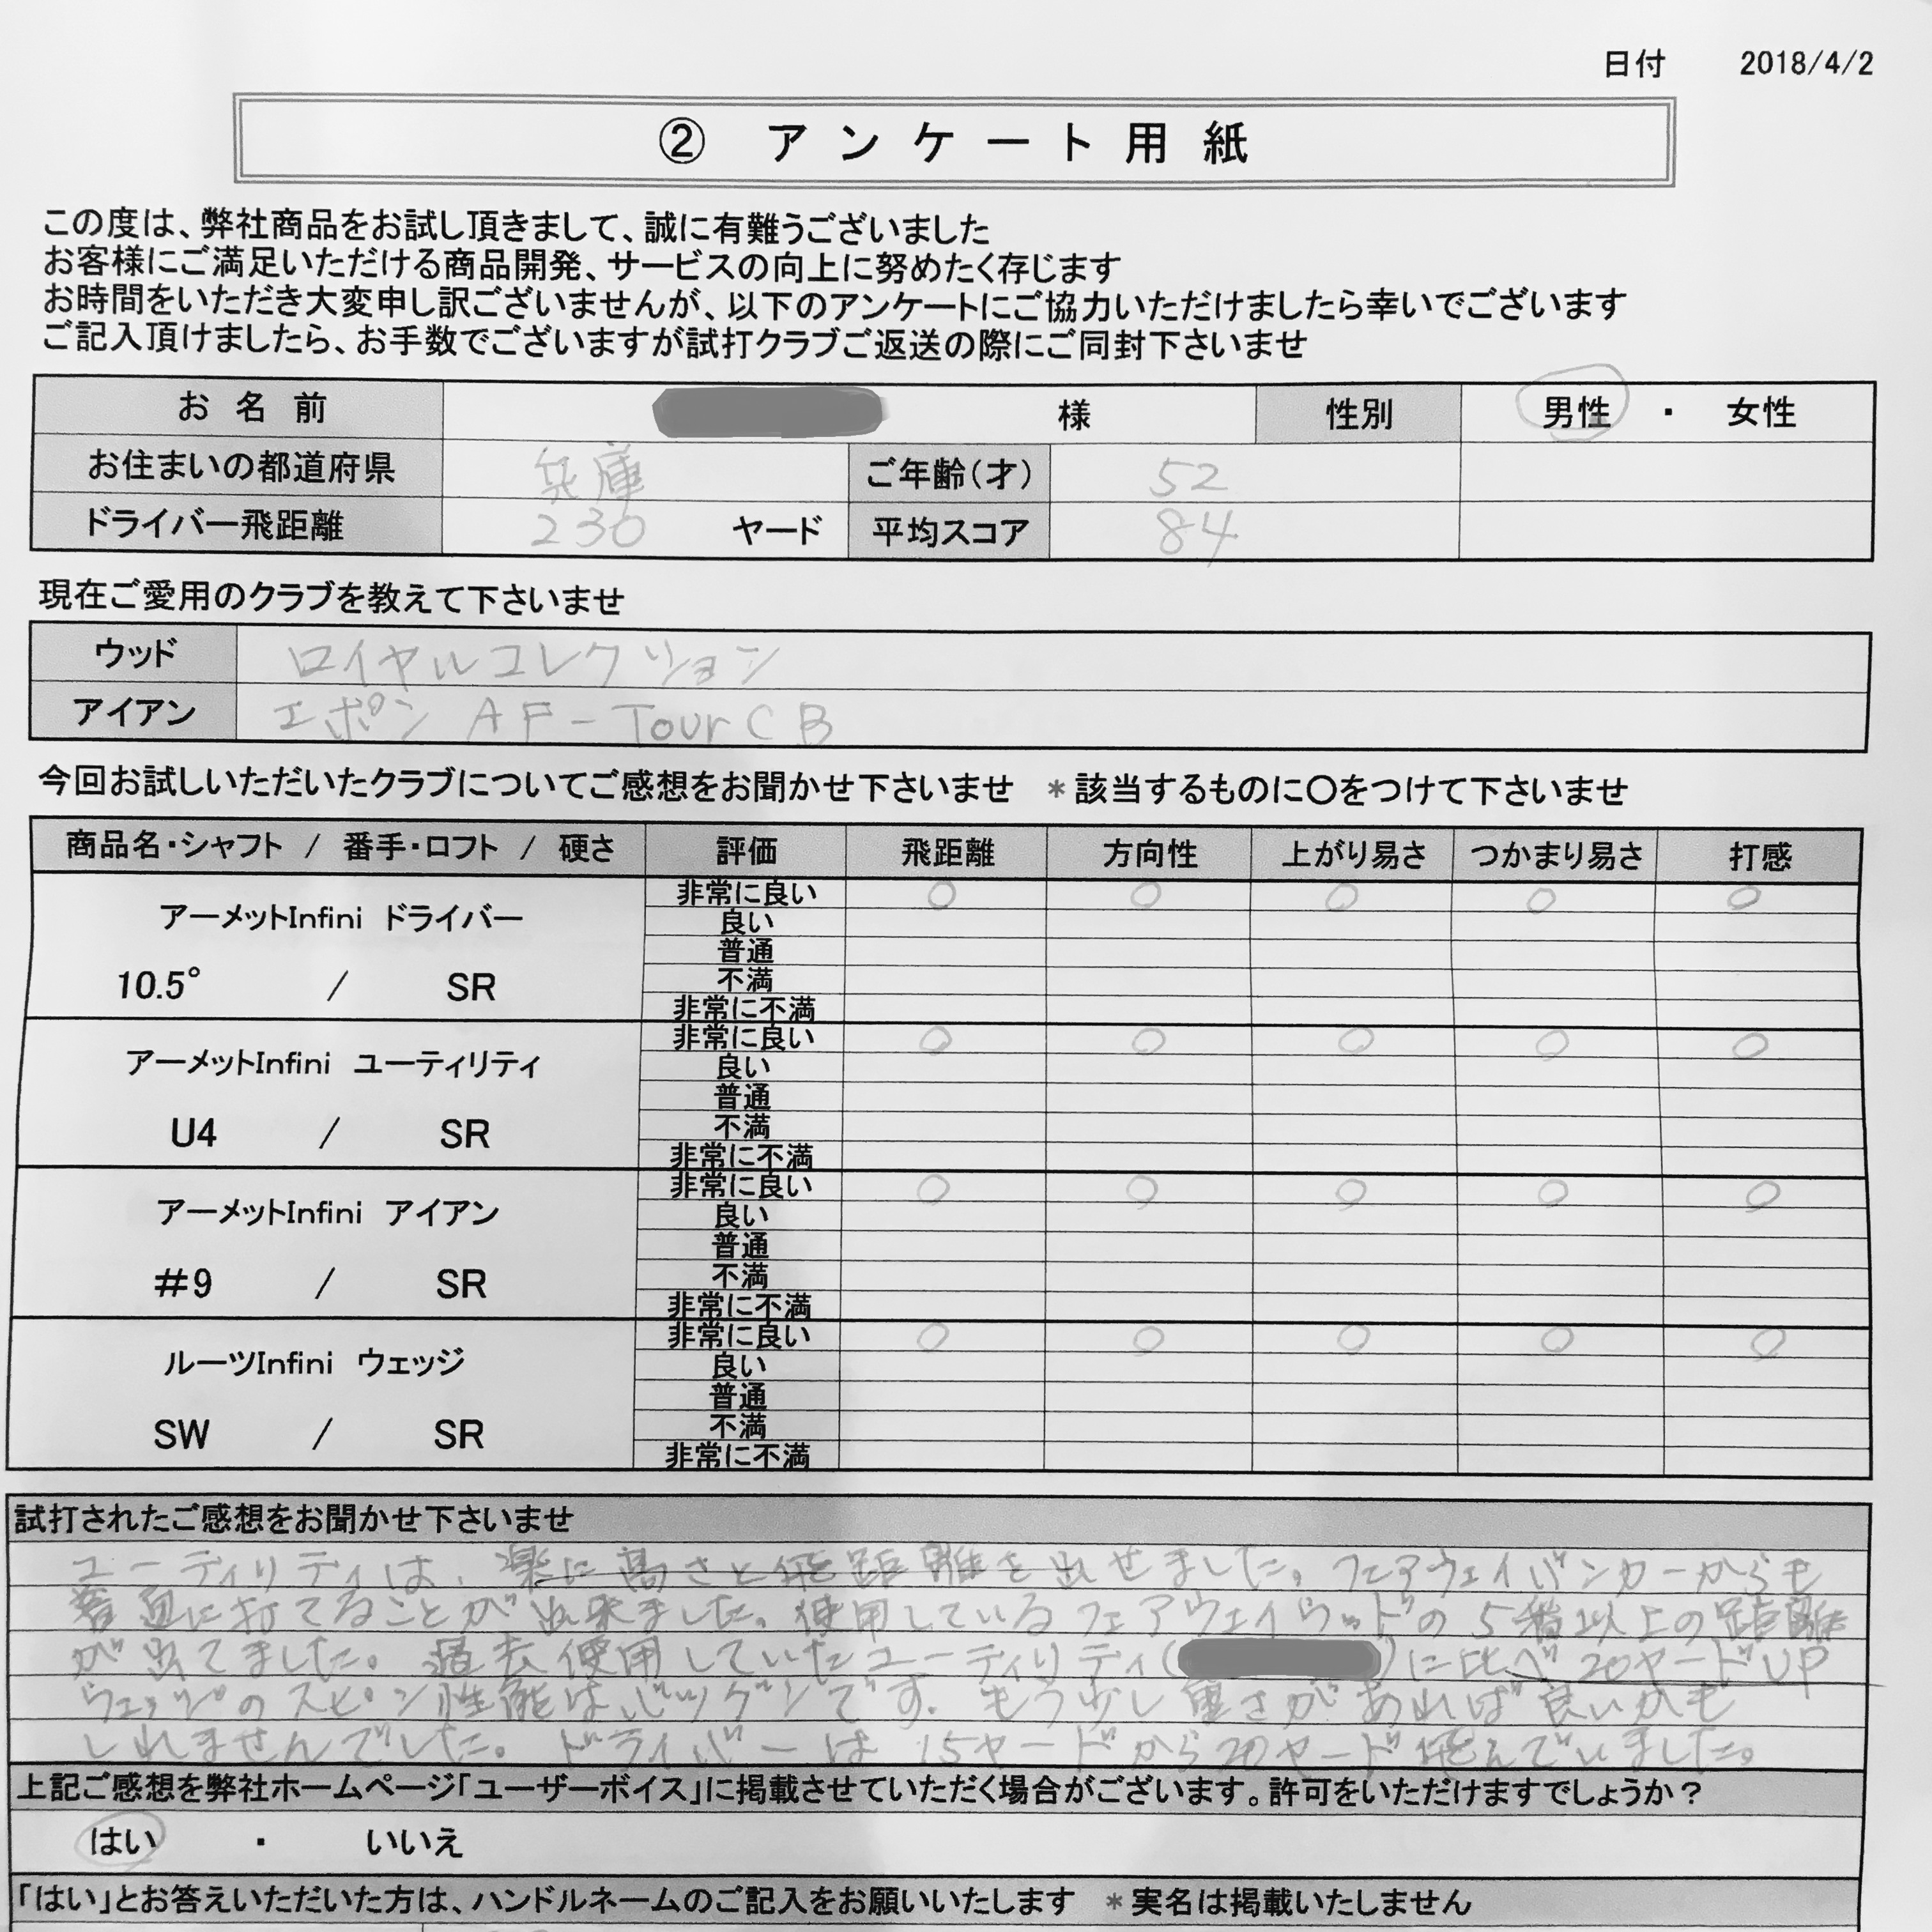 日付 2018/4/2
② アンケート用紙
この度は、弊社商品をお試し頂きまして、誠に有難うございました
お客様にご満足いただける商品開発、サービスの向上に努めたく存じます
お時間をいただき大変申し訳ございませんが、以下のアンケートにご協力いただけましたら幸いでございます
ご記入頂けましたら、お手数でございますが試打クラブご返送の際にご同封下さいませ
お名前 様 性別 男性 ・ 女性
お住まいの都道府県 兵庫 ご年齢(才) 52
ドライバー飛距離 230 ヤード 平均スコア 84
現在ご愛用のクラブを教えて下さいませ
ウッド ロイヤルコレクション
アイアン エポン AF-Tour CB
今回お試しいただいたクラブについてご感想をお聞かせ下さいませ *該当するものに〇をつけて下さいませ
商品名・シャフト / 番手・ロフト / 硬さ 評価 飛距離 方向性 上がり易さ つかまり易さ 打感
アーメットInfini ドライバー
10.5° / SR
非常に良い ○ ○ ○ ○ ○
良い
普通
不満
非常に不満
アーメットInfini ユーティリティ
U4 / SR
非常に良い ○ ○ ○ ○ ○
良い
普通
不満
非常に不満
アーメットInfini アイアン
#9 / SR
非常に良い ○ ○ ○ ○ ○
良い
普通
不満
非常に不満
ルーツInfini ウェッジ
SW / SR
非常に良い ○ ○ ○ ○ ○
良い
普通
不満
非常に不満
試打されたご感想をお聞かせ下さいませ
ユーティリティは、楽に高さと飛距離を出せました。フェアウェイバンカーからも
に打てることが出来ました。使用しているフェアウェイウッドの5番以上の距離
が出てました。過去使用していたユーティリティ( )に比べ20ヤードUP
ウェッジのスピン性能はバツグンです。もう少し重さがあれば良いかも
しれませんでした。ドライバーは15ヤードから20ヤード飛んでいました。
上記ご感想を弊社ホームページ「ユーザーボイス」に掲載させていただく場合がございます。許可をいただけますでしょうか？
はい ・ いいえ
「はい」とお答えいただいた方は、ハンドルネームのご記入をお願いいたします *実名は掲載いたしません